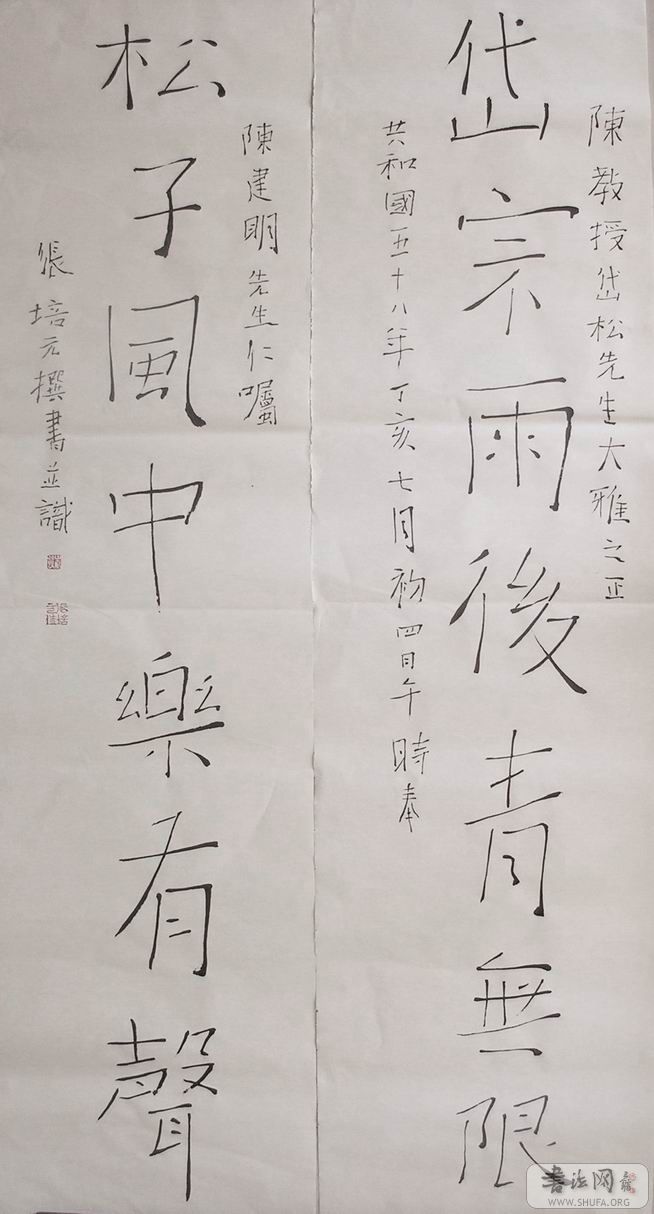 陳教授岱松先生大雅之正
岱宗雨後青無限
共和國五十八年丁亥七月初四日午時奉
陳建明先生仁囑
松子風中樂有聲
張培元撰書並識
書法网
WWW.SHUFA.ORG